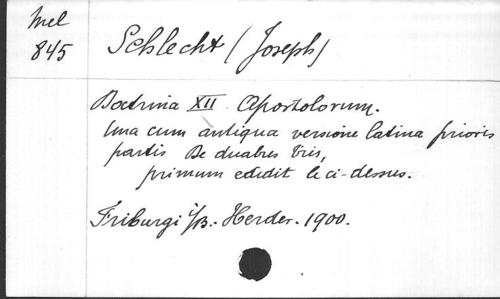 Mel
845
Schlecht (Joseph)
Doctrina XII Apostolorum.
Una cum antiqua versione latina prioris
partis De duabus Viis,
primum edidit le ci-dessus.
Friburgi i/B. - Herder. - 1900.